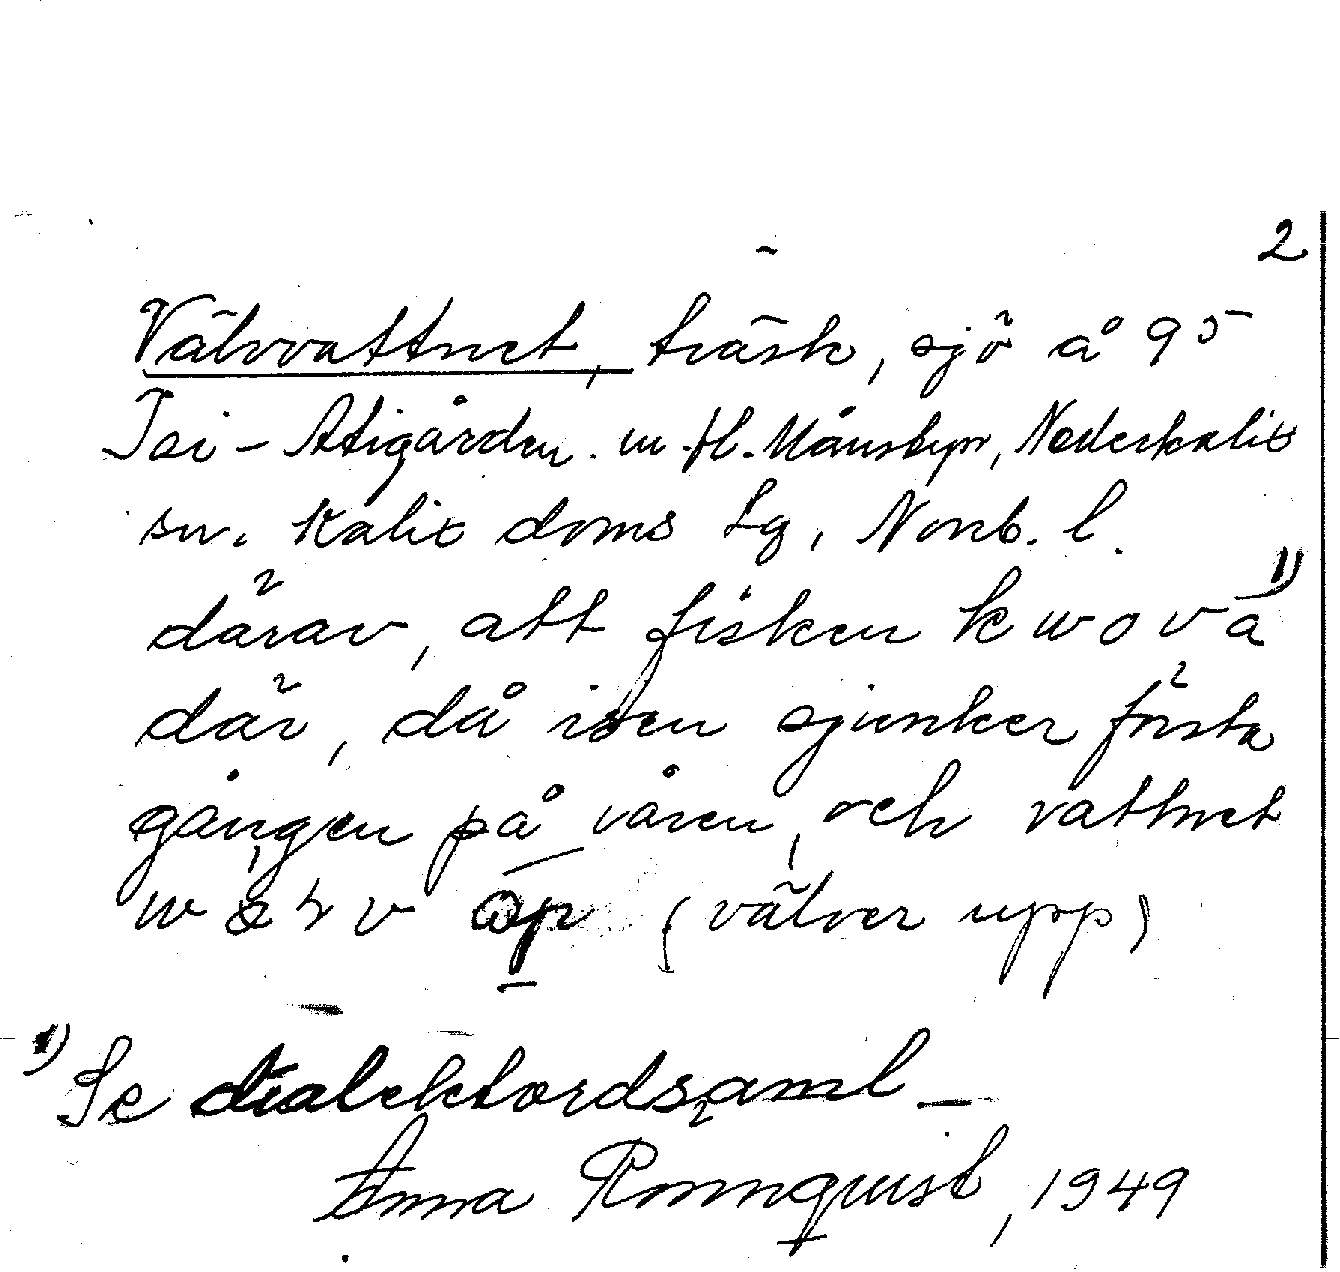 2
Välvvattnet, träsk, sjö å 95
Isi-Atigården m. fl. Månsbyn, Nederkalix
sn. Kalix doms Lg, Norrb. l.
därav, att fisken k w o v a 1)
där, då isen sjunker första
gången på våren, och vattnet
(välver upp)
1) Se dialektordsaml_
Anna Rönnquist, 1949